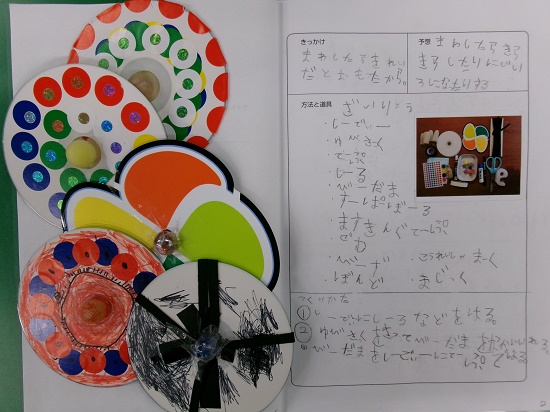 きっかけ
まわしたらきれい
だとおもたから。
予想
まわしたらきら
きらしたりにじい
ろになたりする
方法と道具
ざいりょう
・しーでぃー
・ゆびきっく
・てーぷ
・しーる
・びーだま
・すーぱーぼーる
・ますきんぐてーぷ
・ぜむ
・びーず
・こうれいしゃまーく
・ぼんど
・まじっく
つくりかた
① しーでぃーにしーるなどをはる。
②
びーだまをしーでぃーにてーぷではる
2